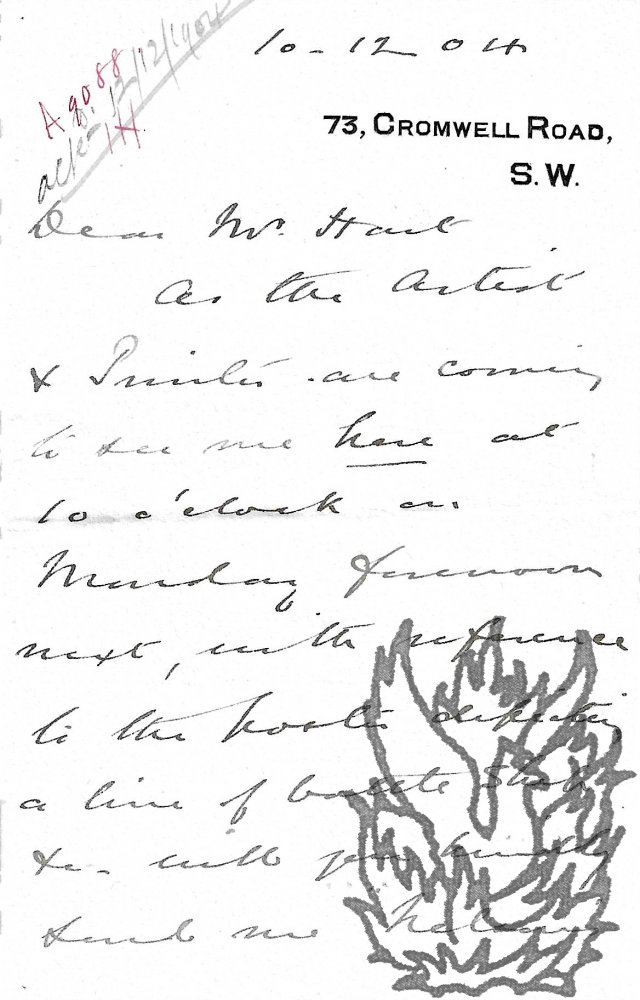 10-12 04
A 9088
ack 12/12/1904
IH.
73, CROMWELL ROAD,
S.W.
Dear Mr. Hart
As the Artist
& Printer are coming
to see me here at
10 o'clock on
Monday forenoon
next, with reference
to the poster depicting
a line of battle Ships
&c. will you kindly
send me